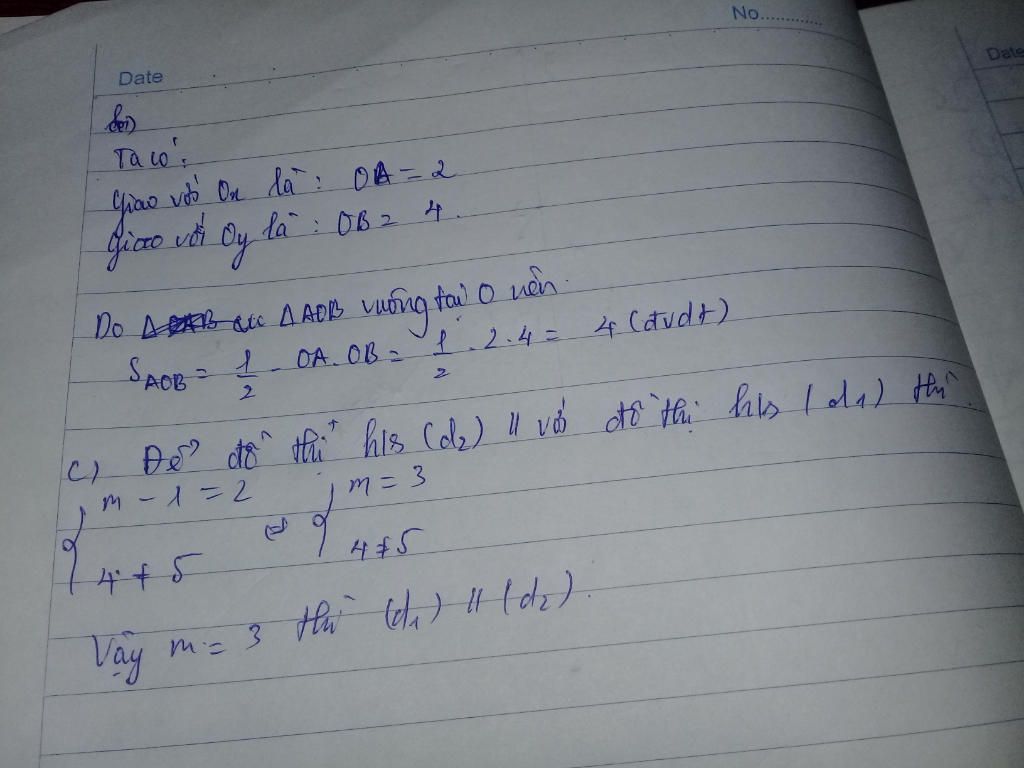 No..............
Date
Date
Ta có:
Giao với Ox là: OA = 2
Giao với Oy là: OB = 4.
Do ΔAOB vuông tại O nên.
S_AOB = 1/2 . OA. OB = 1/2 . 2. 4 = 4 (đvdt)
c) Để đồ thị h/s (d₂) // với đồ thị h/s (d₁) thì
{ m - 1 = 2 ⇔ { m = 3
4 ≠ 5 4 ≠ 5
Vậy m = 3 thì (d₁) // (d₂).